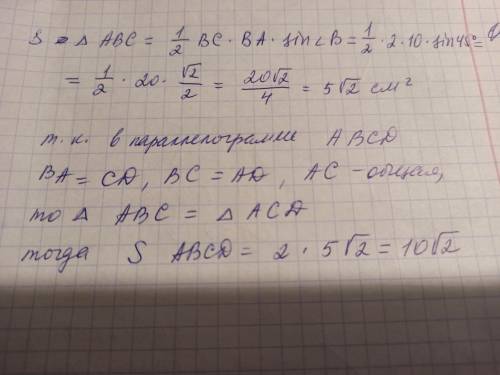 S △ ABC = 1/2 BC · BA · sin∠B = 1/2 · 2 · 10 · sin45° =
= 1/2 · 20 · √2/2 = 20√2/4 = 5√2 см²
т.к. в параллелограмме ABCD
BA = CD, BC = AD, AC - общая,
то △ ABC = △ ACD
тогда S ABCD = 2 · 5√2 = 10√2